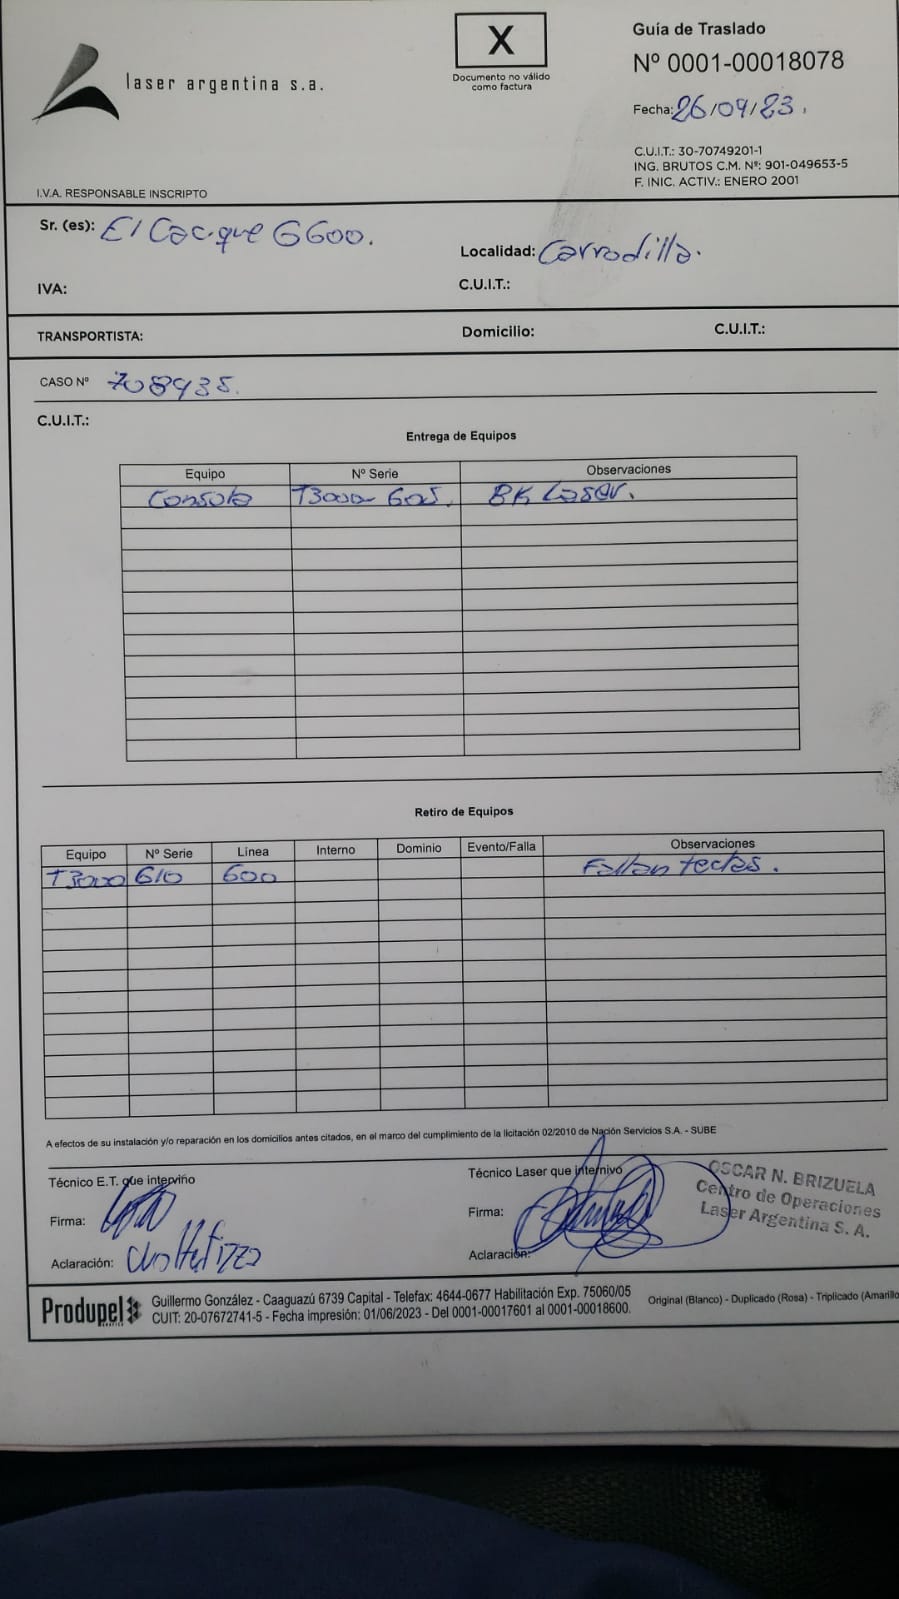 laser argentina s.a.
X
Documento no válido
como factura
Guía de Traslado
Nº 0001-00018078
Fecha: 26/09/23.
C.U.I.T.: 30-70749201-1
ING. BRUTOS C.M. Nº: 901-049653-5
F. INIC. ACTIV.: ENERO 2001
I.V.A. RESPONSABLE INSCRIPTO
Sr. (es): El Cacique G600.
Localidad: Carrodilla.
IVA:
C.U.I.T.:
TRANSPORTISTA:
Domicilio:
C.U.I.T.:
CASO Nº 708935.
C.U.I.T.:
Entrega de Equipos
Equipo Nº Serie Observaciones
Consola T3000 605. BK Laser.
Retiro de Equipos
Equipo Nº Serie Linea Interno Dominio Evento/Falla Observaciones
T3000 610 600 Fallan teclas.
A efectos de su instalación y/o reparación en los domicilios antes citados, en el marco del cumplimiento de la licitación 02/2010 de Nación Servicios S.A. - SUBE
Técnico E.T. que intervino
Firma:
Aclaración:
Técnico Laser que internivo
Firma:
Aclaración:
OSCAR N. BRIZUELA
Centro de Operaciones
Laser Argentina S. A.
Produpel
Guillermo González - Caaguazú 6739 Capital - Telefax: 4644-0677 Habilitación Exp. 75060/05
CUIT: 20-07672741-5 - Fecha impresión: 01/06/2023 - Del 0001-00017601 al 0001-00018600.
Original (Blanco) - Duplicado (Rosa) - Triplicado (Amarillo